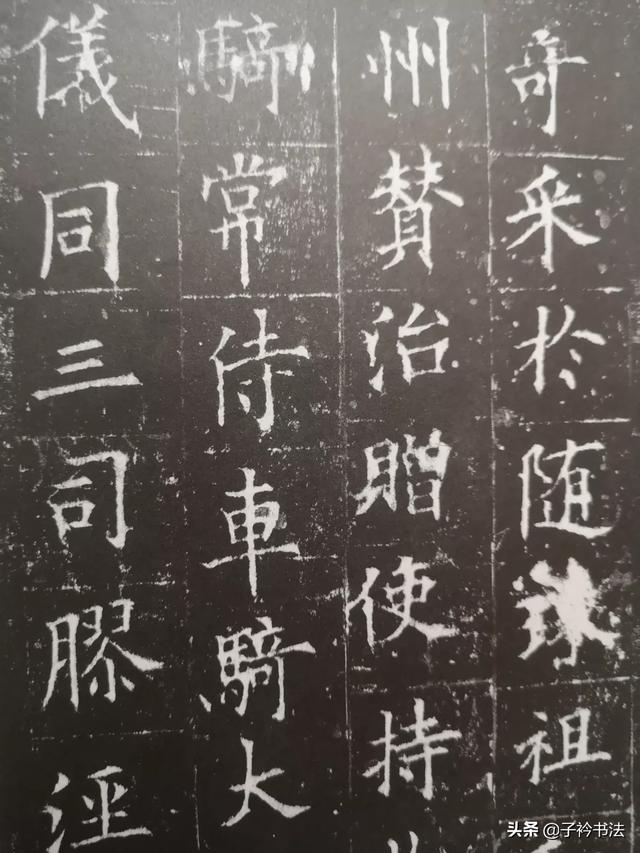 奇采於随珠祖
州賛治贈使持
騎常侍車騎大
儀同三司膠涇
头条 @子衿书法